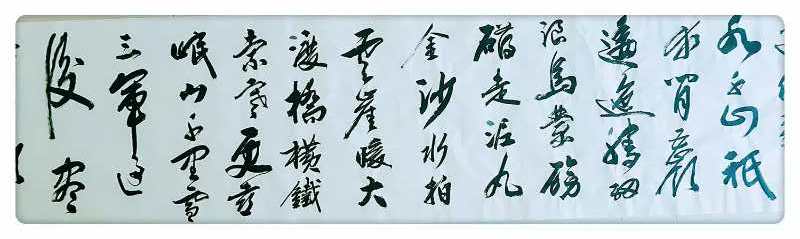 水千山祗
等閒五嶺
逶迤騰細
浪烏蒙磅
礴走泥丸
金沙水拍
雲崖暖大
渡橋橫鐵
索寒更喜
岷山千里雪
三軍過
後盡